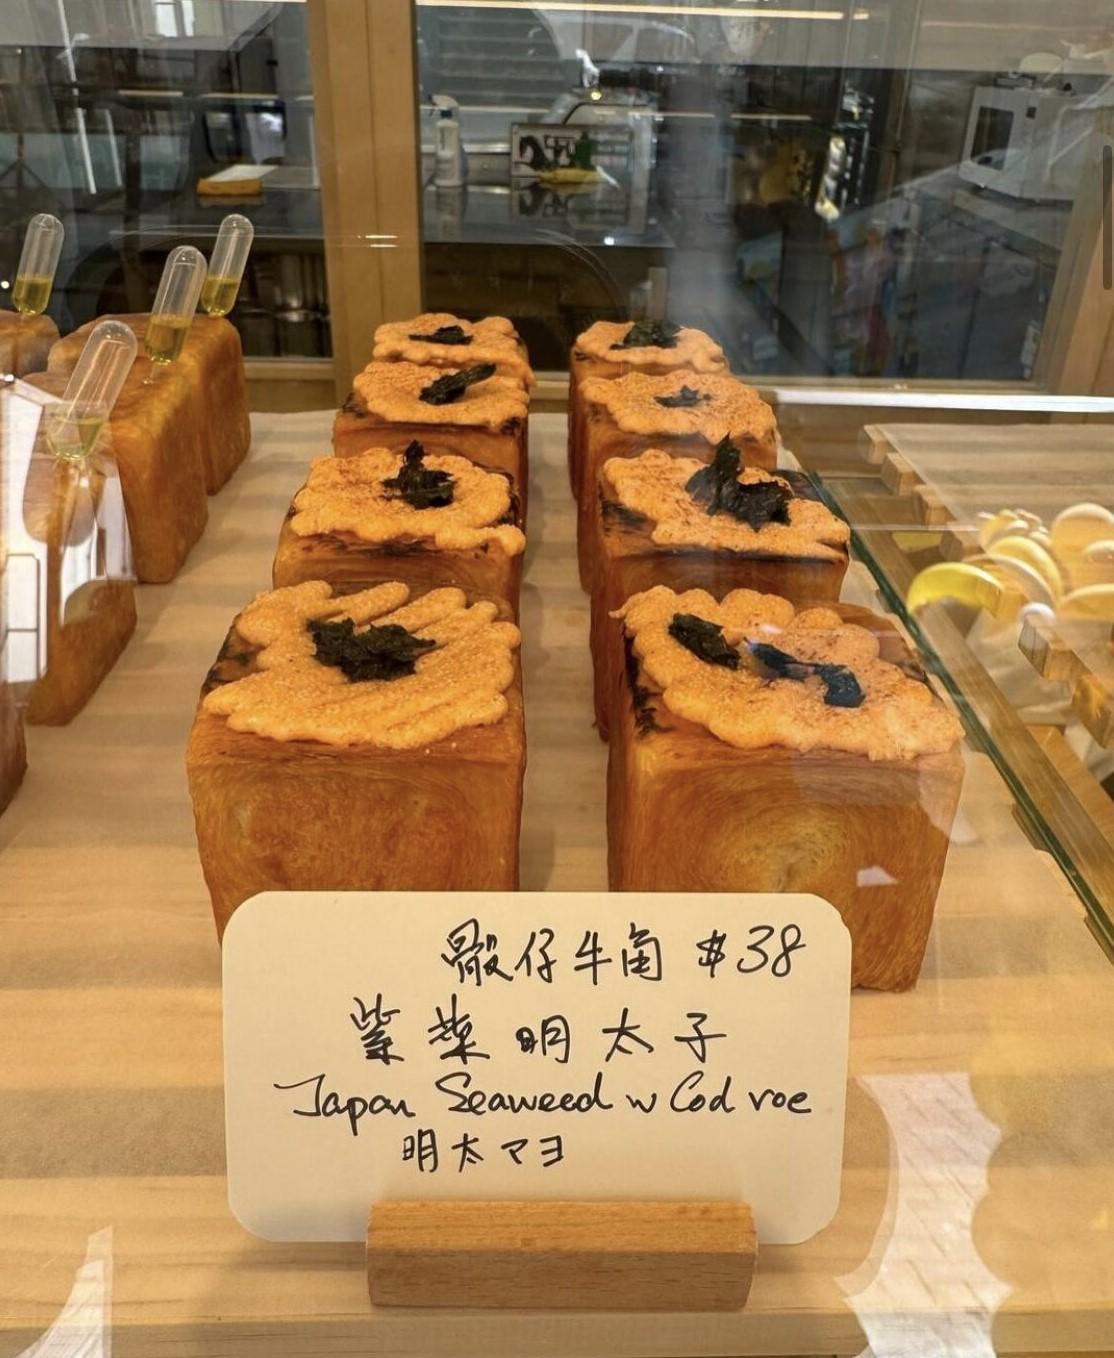 骰仔牛角 $38
紫菜明太子
Japan Seaweed w Cod roe
明太マヨ